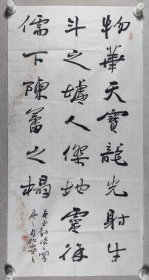 物華天寶龍光射牛
斗之墟人傑地靈徐
儒下陳蕃之榻